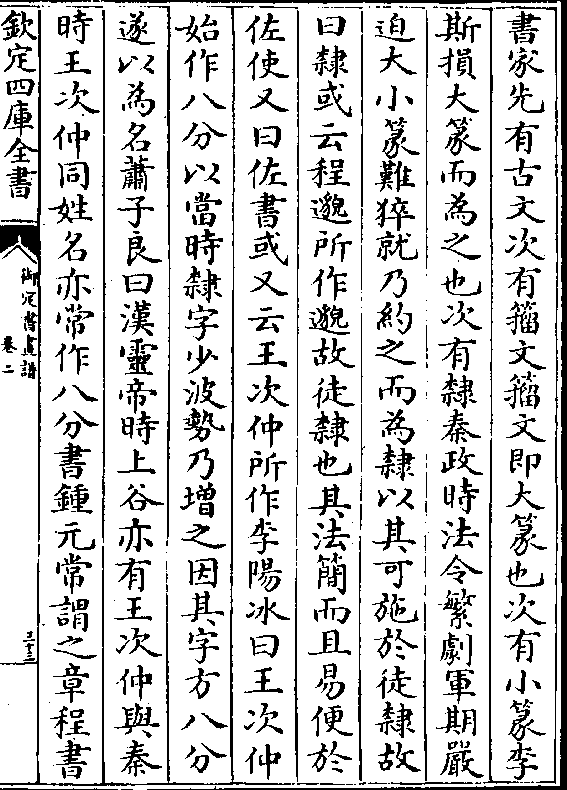 書家先有古文次有籀文籀文即大篆也次有小篆李
斯損大篆而為之也次有隸秦政時法令繁劇軍期嚴
迫大小篆難猝就乃約之而為隸以其可施於徒隸故
曰隸或云程邈所作邈故徒隸也其法簡而且易便於
佐使又曰佐書或又云王次仲所作李陽冰曰王次仲
始作八分以當時隸字少波勢乃增之因其字方八分
遂以為名蕭子良曰漢靈帝時上谷亦有王次仲與秦
時王次仲同姓名亦常作八分書鍾元常謂之章程書
欽定四庫全書
御定書畫譜
卷二
三十三